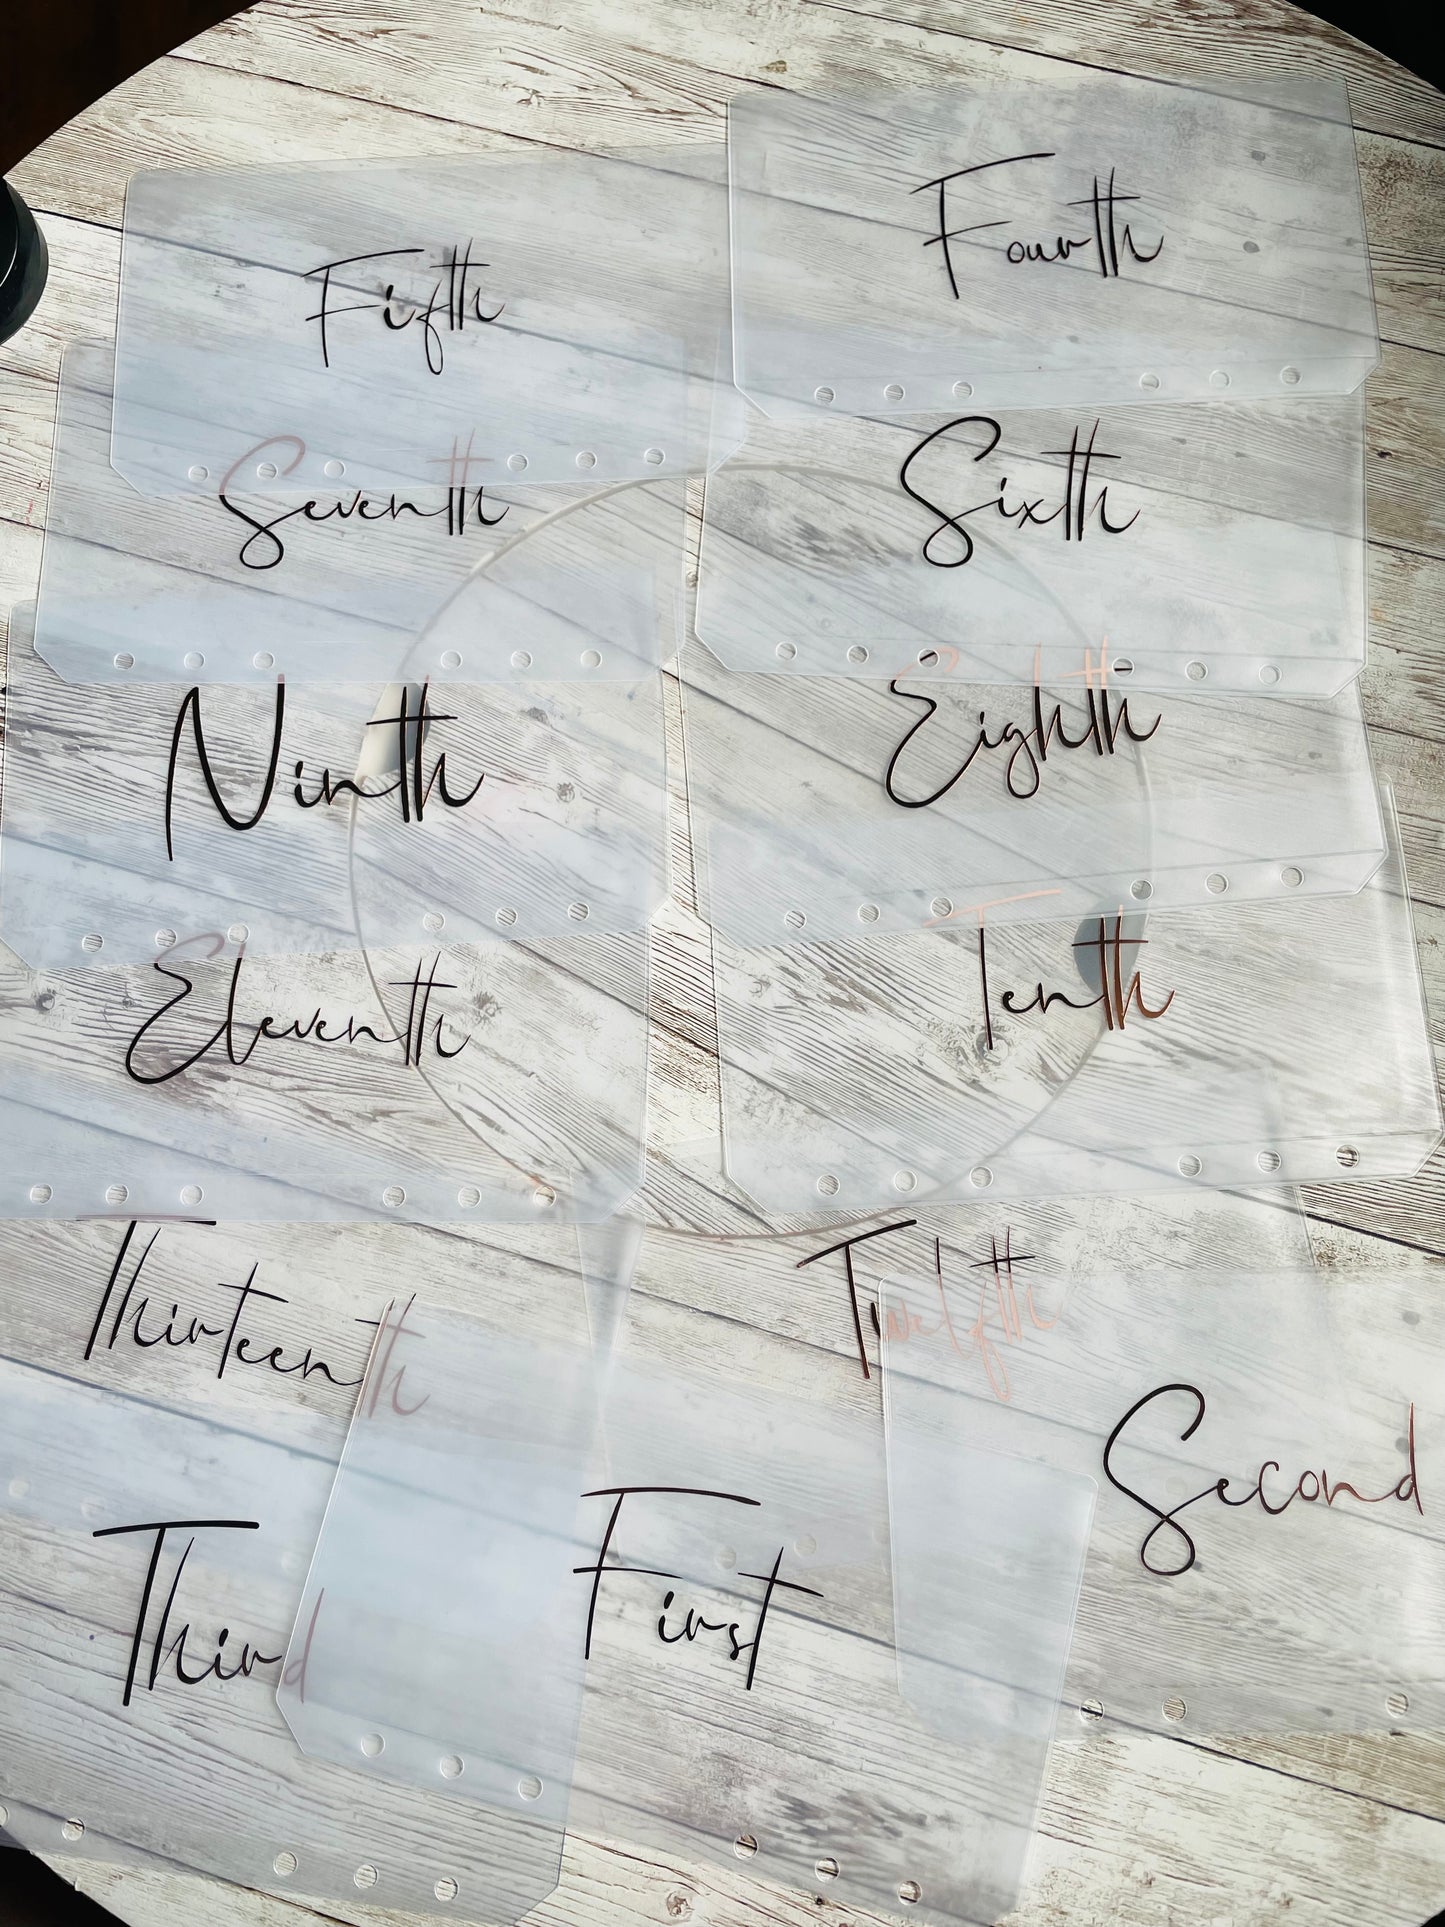 Fourth
Fifth
Sixth
Seventh
Eighth
Ninth
Tenth
Eleventh
Twelfth
Thirteenth
Second
First
Third